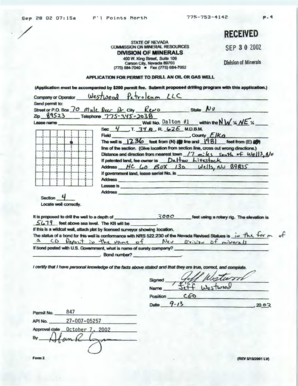 Sep 28 02 07:15a P'l Points North 775-763-4142 p.4
RECEIVED
SEP 30 2002
Division of Minerals
STATE OF NEVADA
COMMISSION ON MINERAL RESOURCES
DIVISION OF MINERALS
400 W. King Street, Suite 106
Carson City, Nevada 89703
(775) 684-7040 • Fax (775) 684-7052
APPLICATION FOR PERMIT TO DRILL AN OIL OR GAS WELL
(Application must be accompanied by $200 permit fee. Submit proposed drilling program with this application.)
Company or Operator Westwood Petroleum LLC
Send permit to:
Street or P.O. Box 70 Mule Deer Ct City Reno State NV
Zip 89523 Telephone 775-345-2038
Lease name Well No. Dalton #1 within the NW¼ NE¼
Sec 4 T. 34N R. 62E M.D.B.M.
Field County Elko
The well is 1236 feet from (N) line and 1981 feet from (E)
line of the section. (Give location from section line, cross out wrong directions.)
Distance and direction from nearest town 17 miles south of Wells, NV
If patented land, fee owner is Dalton Livestock
Address HC 60 Box 130 Wells, NV 89835
If government land, lease serial No. is
Address
Lessee is
Address
Section 4
Locate well correctly.
It is proposed to drill the well to a depth of 7000 feet using a rotary rig. The elevation is
5679 feet above sea level. The KB will be
If this is a wildcat well, attach plat by licensed surveyor showing location.
The status of a bond for this well in conformance with NRS 522.230 of the Nevada Revised Statutes is in the form of
a CD Deposit in the name of Nev Division of minerals
If bond posted with U.S. Government, what is name of surety company?
Bond number?
I certify that I have personal knowledge of the facts above stated and that they are true, correct, and complete.
Signed Jeff Westwood
Name Jeff Westwood
Position CEO
Date 9-13 2002
Permit No. 847
API No. 27-007-05257
Approved date October 7, 2002
By
Form 2